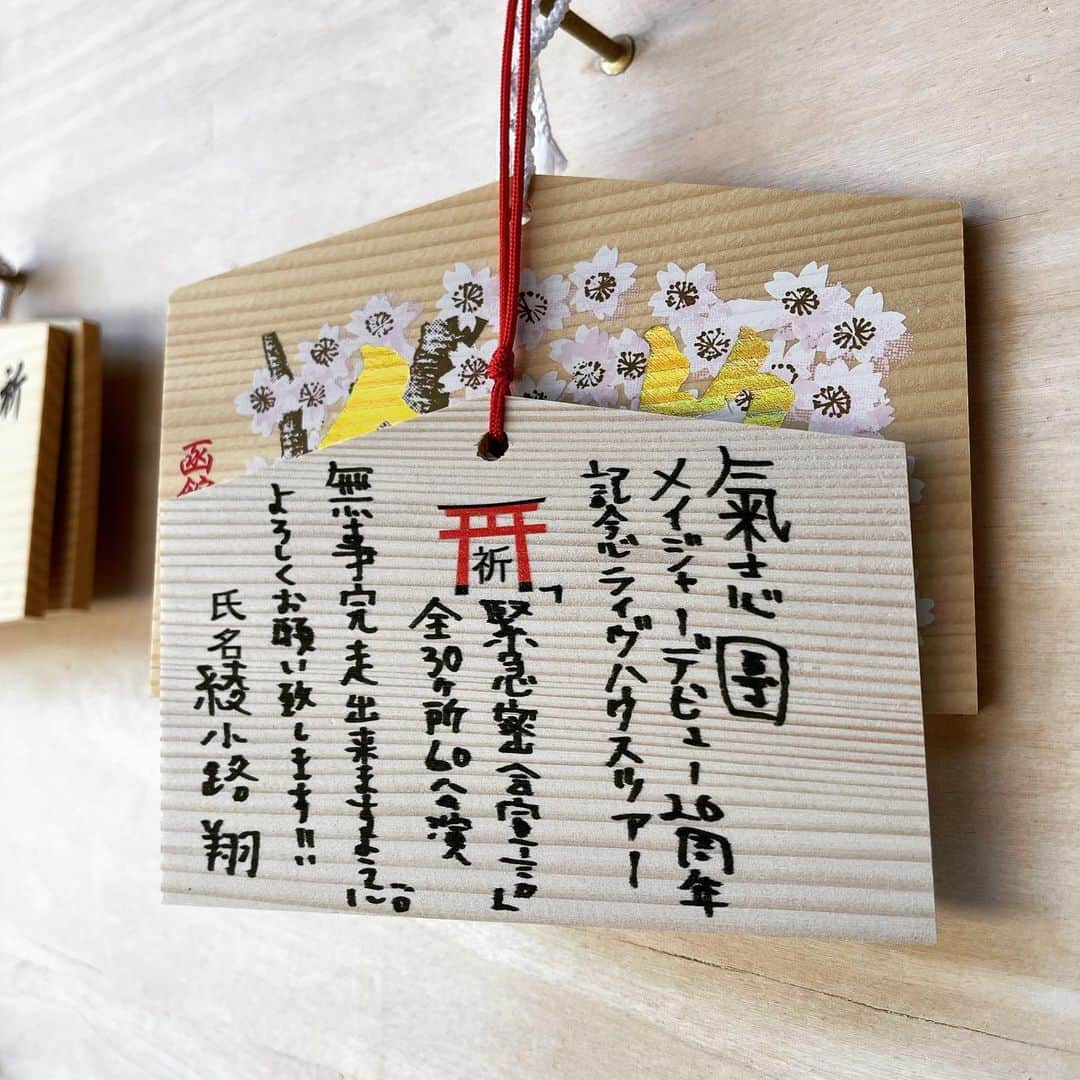 氣志團
メイジャーデビュー20周年
記念ライヴハウスツアー
祈
「緊急密会宣言」
全30ヶ所60公演
無事完走出来ますように。
よろしくお願い致します!!
氏名 綾小路 翔
函館
祈